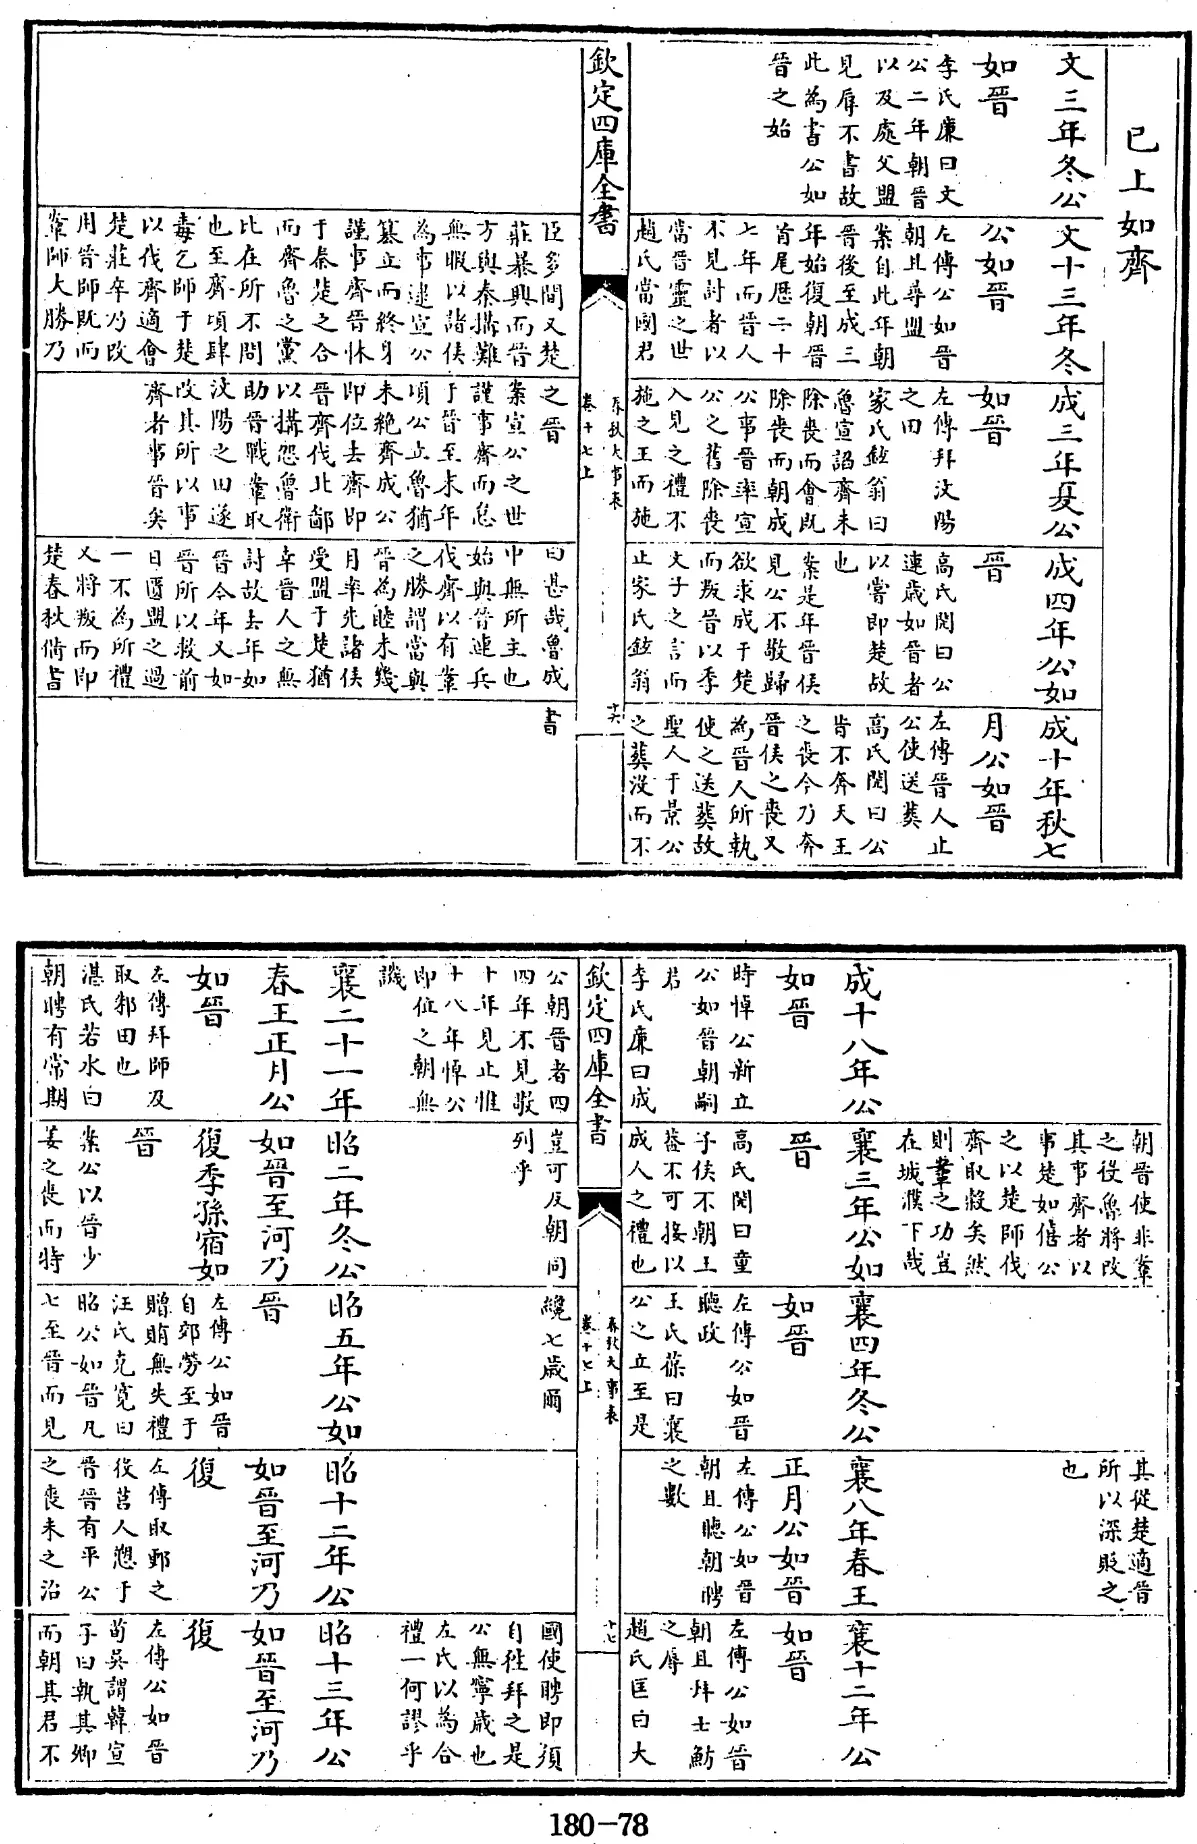 已上如齊
文三年冬公
如晉
李氏廉曰文
公二年朝晉
以及處父盟
見辱不書故
此為書公如
晉之始
文十三年冬
公如晉
左傳公如晉
朝且尋盟
案自此年朝
晉後至成三
年始復朝晉
首尾歴二十
七年而晉人
不見討者以
當晉靈之世
趙氏當國君
成三年夏公
如晉
左傳拜汶陽
之田
家氏鉉翁曰
魯宣諂齊未
除喪而會既
除喪而朝成
公事晉率宣
公之舊除喪
入見之禮不
施之王而施
成四年公如
晉
高氏閌曰公
連歲如晉者
以嘗即楚故
也
案是年晉侯
見公不敬歸
欲求成于楚
而叛晉以季
文子之言而
止家氏鉉翁
成十年秋七
月公如晉
左傳晉人止
公使送葬
高氏閌曰公
皆不奔天王
之喪今乃奔
晉侯之喪又
為晉人所執
使之送葬故
聖人于景公
之葬沒而不
欽定四庫全書
春秋大事表
卷十七上
十六
臣多間又楚
莊暴興而晉
方與秦搆難
無暇以諸侯
為事逮宣公
簒立而終身
謹事齊晉怵
于秦楚之合
而齊魯之黨
比在所不問
也至齊頃肆
毒乞師于楚
以伐齊適會
楚莊卒乃改
用晉師既而
鞌師大勝乃
之晉
案宣公之世
謹事齊而怠
于晉至末年
頃公立魯猶
未絶齊成公
即位去齊即
晉齊伐北鄙
以搆怨魯衛
助晉戰鞌取
汶陽之田遂
改其所以事
齊者事晉矣
曰甚哉魯成
中無所主也
始與晉連兵
伐齊以有鞌
之勝謂當與
晉為睦未幾
月率先諸侯
受盟于楚猶
幸晉人之無
討故去年如
晉今年又如
晉所以救前
日匱盟之過
一不為所禮
又將叛而即
楚春秋備書
書
成十八年公
如晉
時悼公新立
公如晉朝嗣
君
李氏廉曰成
朝晉使非鞌
之役魯將改
其事齊者以
事楚如僖公
之以楚師伐
齊取榖矣然
則鞌之功豈
在城濮下哉
襄三年公如
晉
高氏閌曰童
子侯不朝王
蓋不可接以
成人之禮也
襄四年冬公
如晉
左傳公如晉
聽政
王氏葆曰襄
公之立至是
其從楚適晉
所以深貶之
也
襄八年春王
正月公如晉
左傳公如晉
朝且聽朝聘
之數
襄十二年公
如晉
左傳公如晉
朝且拜士魴
之辱
趙氏匡曰大
欽定四庫全書
春秋大事表
卷十七上
十七
公朝晉者四
四年不見敬
十年見止惟
十八年悼公
即位之朝無
譏
襄二十一年
春王正月公
如晉
左傳拜師及
取邾田也
湛氏若水曰
朝聘有常期
豈可反朝同
列乎
昭二年冬公
如晉至河乃
復季孫宿如
晉
案公以晉少
姜之喪而特
纔七歲爾
昭五年公如
晉
左傳公如晉
自郊勞至于
贈賄無失禮
汪氏克寛曰
昭公如晉凡
七至晉而見
昭十二年公
如晉至河乃
復
左傳取郠之
役莒人愬于
晉晉有平公
之喪未之治
國使聘即須
自往拜之是
公無寧歲也
左氏以為合
禮一何謬乎
昭十三年公
如晉至河乃
復
左傳公如晉
荀吳謂韓宣
子曰執其卿
而朝其君不
180-78